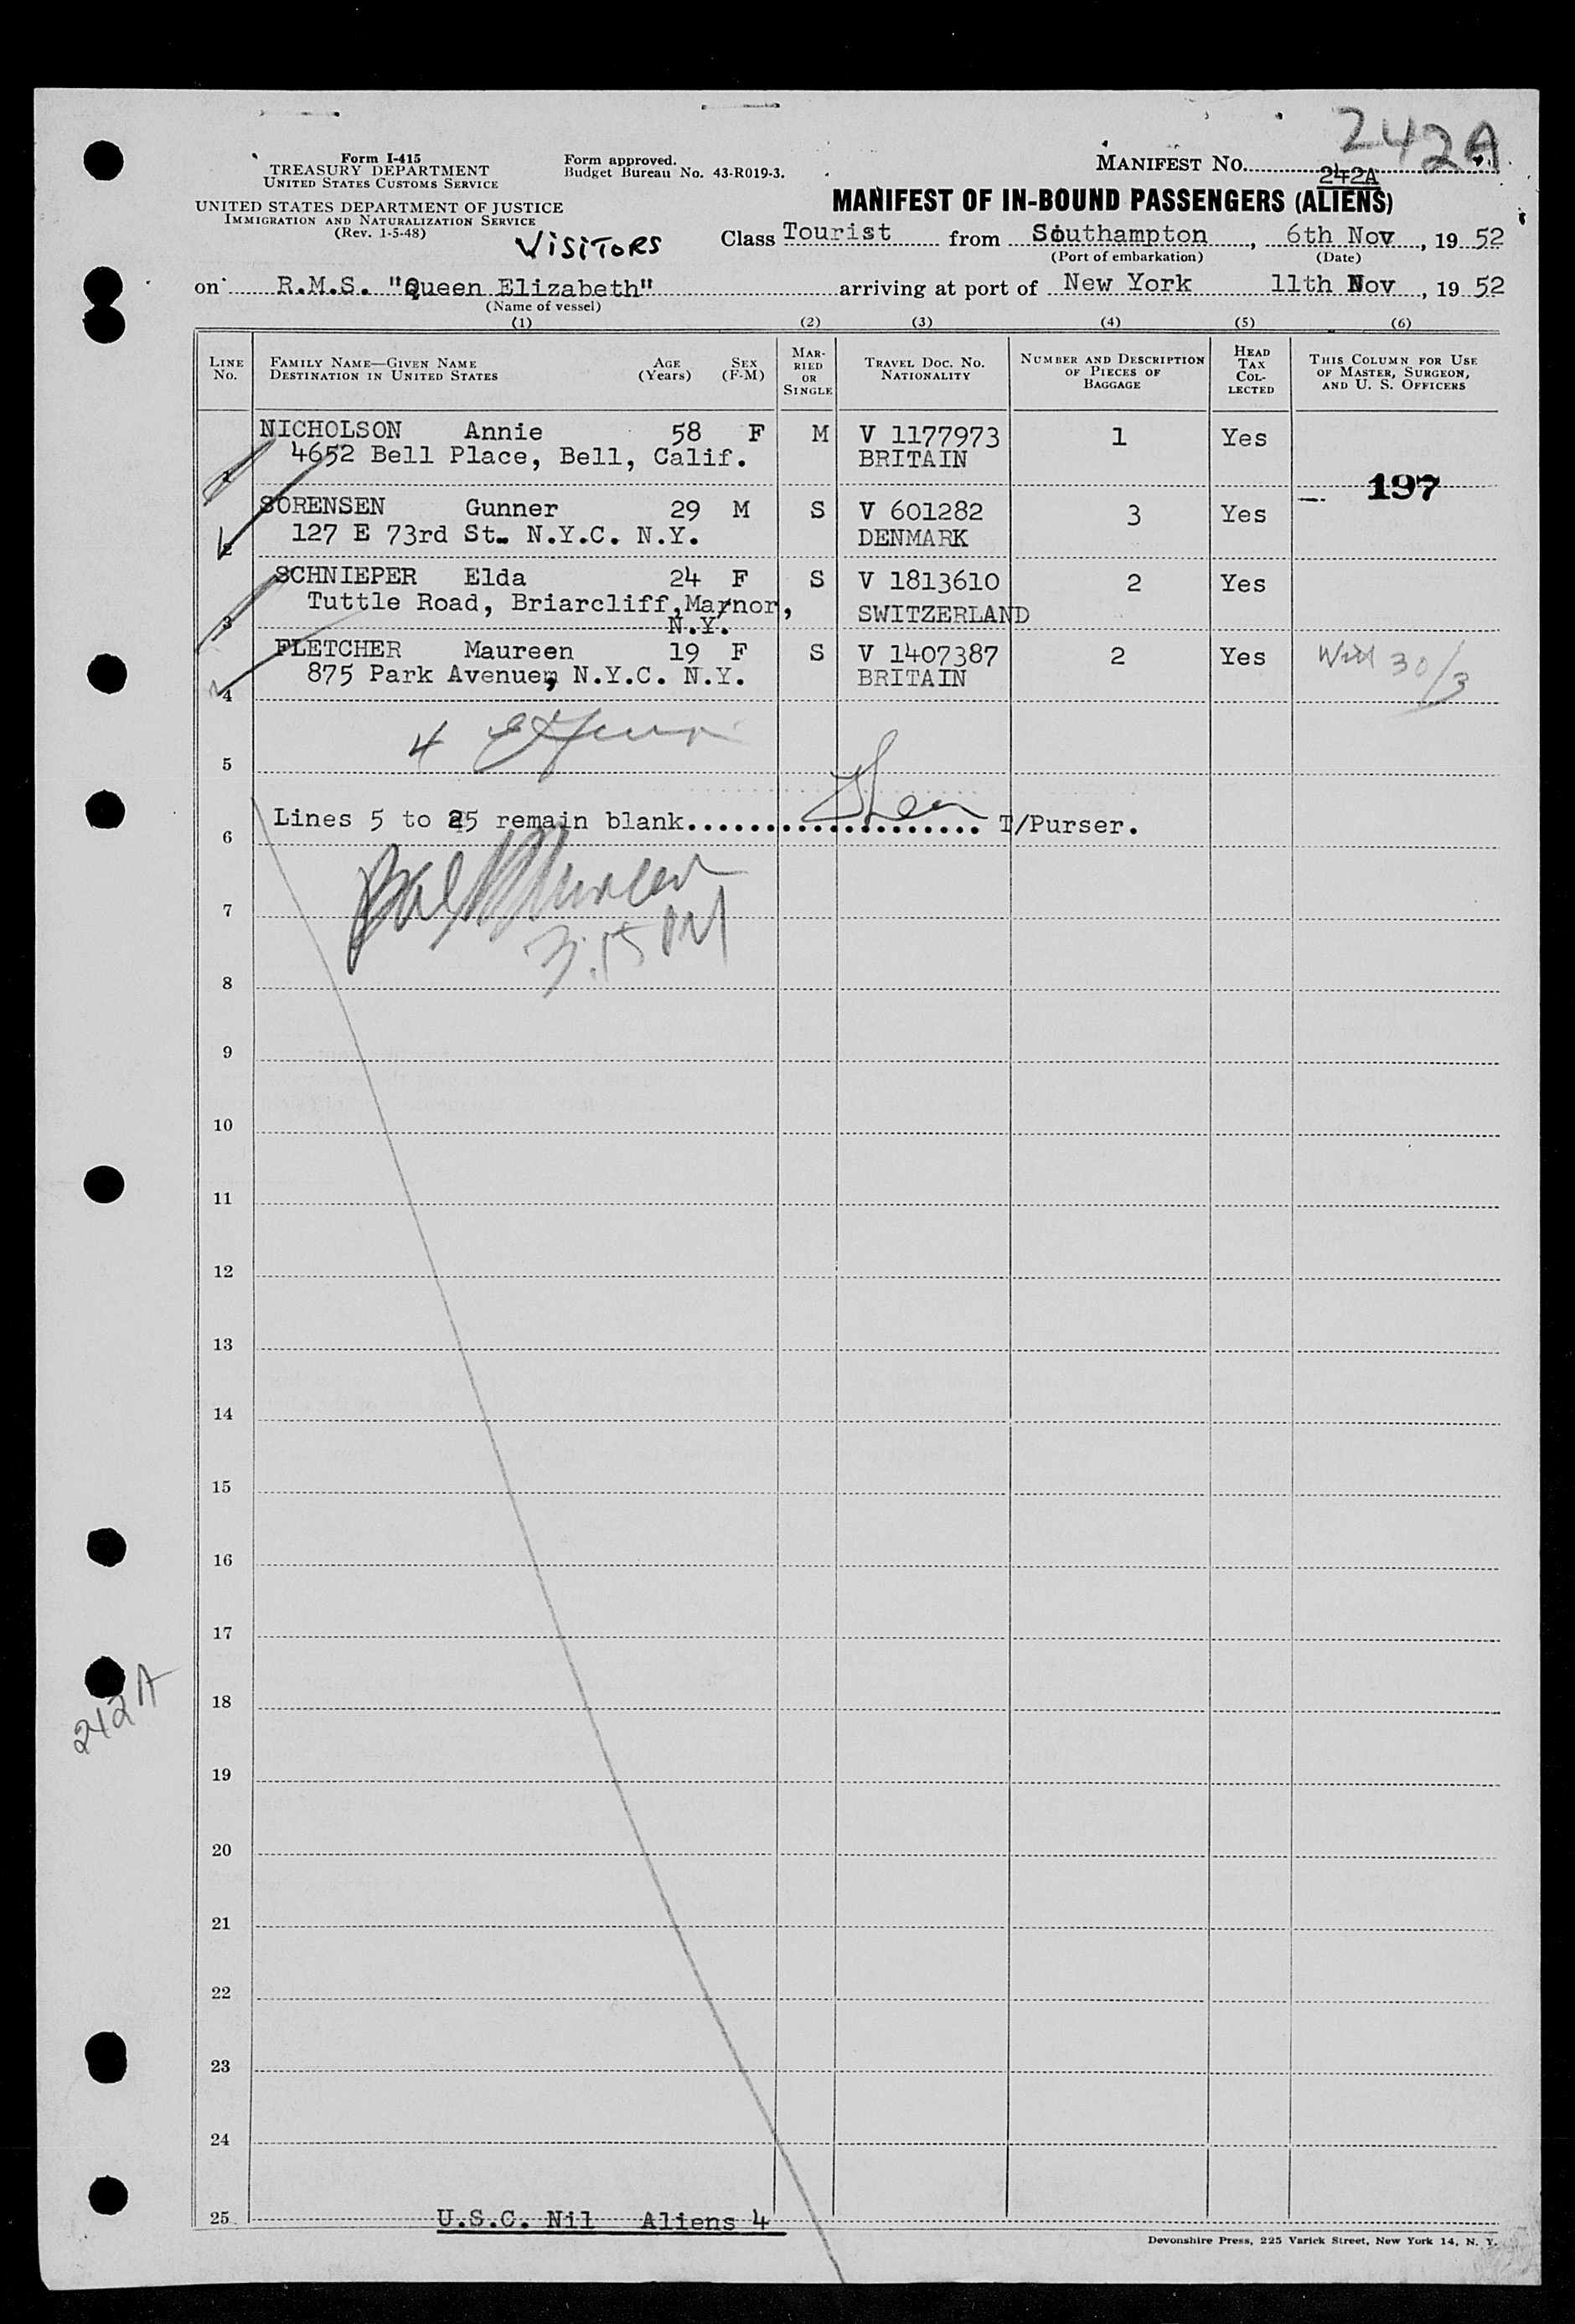 242A
Form I-415
TREASURY DEPARTMENT
UNITED STATES CUSTOMS SERVICE
UNITED STATES DEPARTMENT OF JUSTICE
IMMIGRATION AND NATURALIZATION SERVICE
(Rev. 1-5-48)
Form approved.
Budget Bureau No. 43-R019-3.
MANIFEST No. 242A
MANIFEST OF IN-BOUND PASSENGERS (ALIENS)
VISITORS
Class Tourist from Southampton, 6th Nov, 19 52
(Port of embarkation) (Date)
on R.M.S. "Queen Elizabeth" arriving at port of New York 11th Nov, 19 52
(Name of vessel)
(1) (2) (3) (4) (5) (6)
LINE No. FAMILY NAME—GIVEN NAME DESTINATION IN UNITED STATES AGE (Years) SEX (F-M) MARRIED OR SINGLE TRAVEL DOC. NO. NATIONALITY NUMBER AND DESCRIPTION OF PIECES OF BAGGAGE HEAD TAX COLLECTED THIS COLUMN FOR USE OF MASTER, SURGEON, AND U. S. OFFICERS
1 NICHOLSON Annie 58 F M V 1177973 1 Yes
4652 Bell Place, Bell, Calif. BRITAIN
197
2 SORENSEN Gunner 29 M S V 601282 3 Yes
127 E 73rd St. N.Y.C. N.Y. DENMARK
3 SCHNIEPER Elda 24 F S V 1813610 2 Yes
Tuttle Road, Briarcliff, Maynor, SWITZERLAND
N.Y.
4 FLETCHER Maureen 19 F S V 1407387 2 Yes 30/3
875 Park Avenue, N.Y.C. N.Y. BRITAIN
4
5
Lines 5 to 25 remain blank.................... T/Purser.
6
7
3:15 PM
8
9
10
11
12
13
14
15
16
17
242A
18
19
20
21
22
23
24
25 U.S.C. Nil Aliens 4
Devonshire Press, 225 Varick Street, New York 14, N. Y.